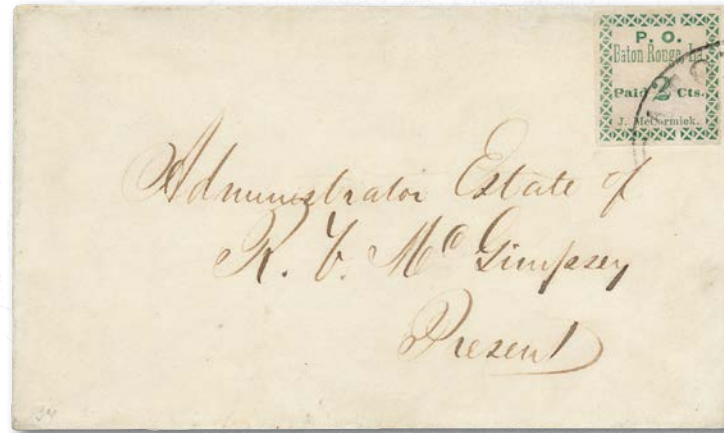 P. O.
Baton Rouge, La.
Paid 2 Cts.
J. McCormick.
Administrator Estate of
R. C. McGimpsey
Present
34